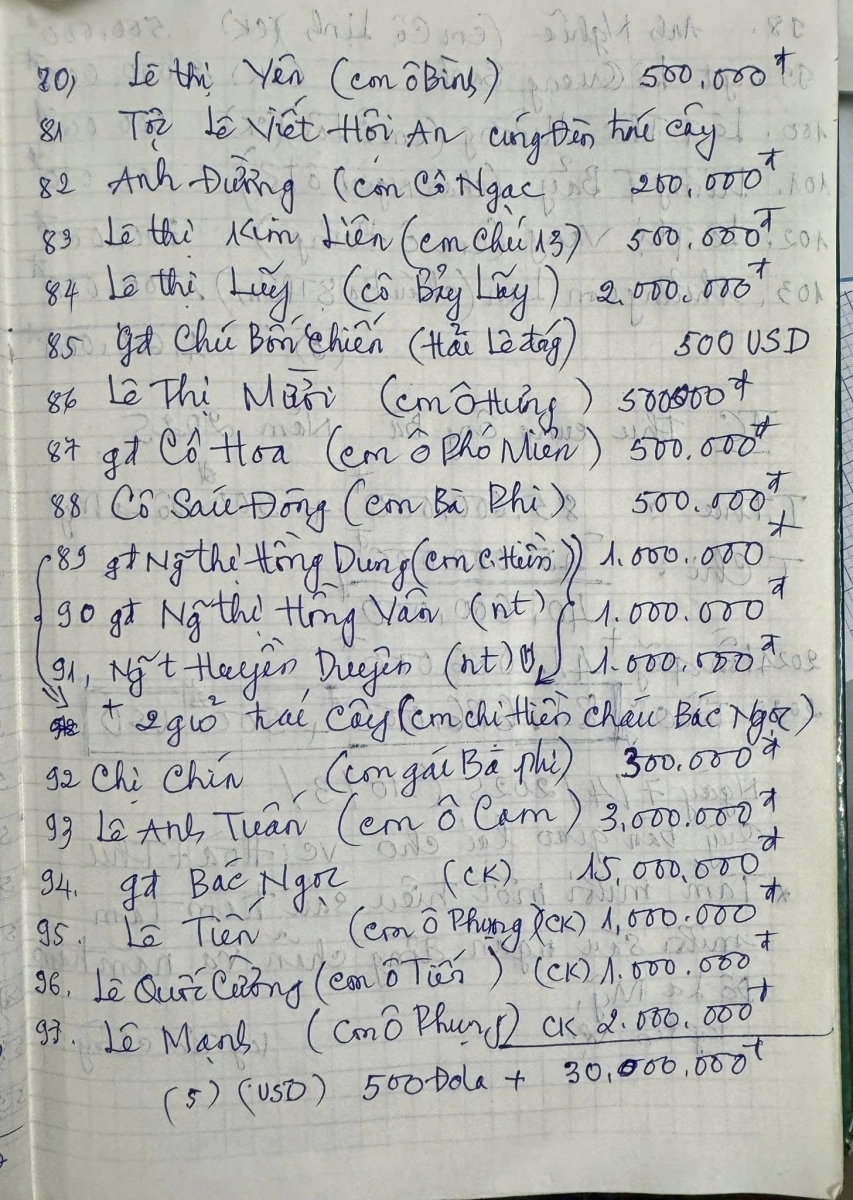 80, Lê thị Yên (con ô Bình) 500.000đ
81 Tộc Lê Viết Hội An cúng Đèn trái cây
82 Anh Đường (con Cô Ngạc 200.000đ
83 Lê thị Kim Liên (con chú 13) 500.000đ
84 Lê thị Luỹ (cô Bảy Lãy) 2.000.000đ
85 gđ Chú Bốn Chiến (Hải Lê đág) 500 USD
86 Lê Thị Mười (con Ô Hưng) 500000đ
87 gđ Cô Hoa (con Ô Phó Miên) 500.000đ
88 Cô Sáu Đông (con Bà Phi) 500.000đ
89 gđ Ngthị Hồng Dung (con c. Hiền) 1.000.000đ
90 gđ Ng thị Hồng Vân (nt) 1.000.000đ
91, Ng t Huyền Duyên (nt) 1.000.000đ
+ 2 giỏ trái cây (con chi Hiền cháu Bác Ngọc)
92 Chị Chín (con gái Bà phi) 300.000đ
93 Lê Anh Tuấn (con Ô Cam) 3,000.000đ
94. gđ Bác Ngọc (CK) 15,000.000đ
95. Lê Tiến (con Ô Phụng) (CK) 1,000.000đ
96. Lê Quốc Cường (con Ô Tiến) (CK) 1.000.000đ
97. Lê Mạnh (con Ô Phụng) CK 2.000.000đ
(5) (USD) 500 Đola + 30,000,000đ